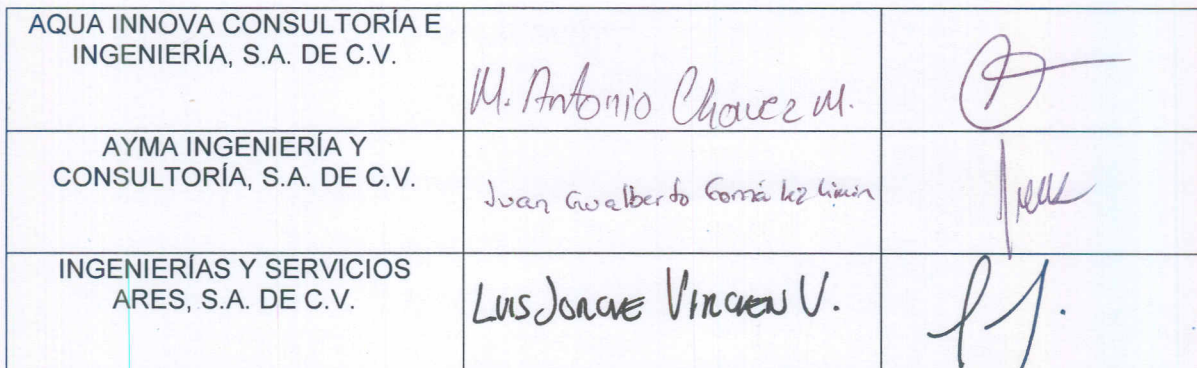 AQUA INNOVA CONSULTORÍA E
INGENIERÍA, S.A. DE C.V.
M. Antonio Chavez M.
AYMA INGENIERÍA Y
CONSULTORÍA, S.A. DE C.V.
Juan Gualberto González
INGENIERÍAS Y SERVICIOS
ARES, S.A. DE C.V.
LUIS JORGE VIRGEN V.